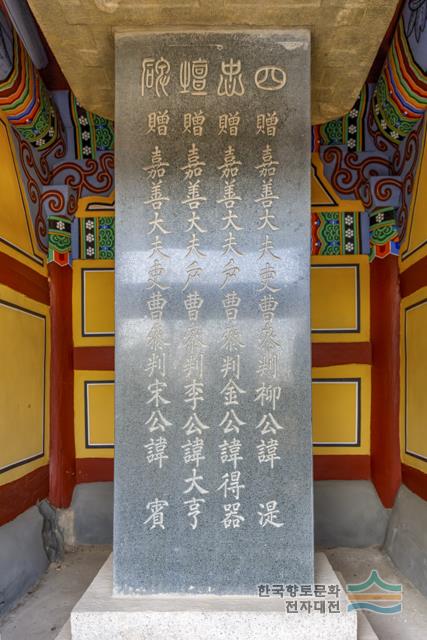 四忠壇碑
贈嘉善大夫吏曹參判柳公諱 湜
贈嘉善大夫戶曹參判金公諱得器
贈嘉善大夫戶曹參判李公諱大亨
贈嘉善大夫吏曹參判宋公諱 賓
한국향토문화
전자대전